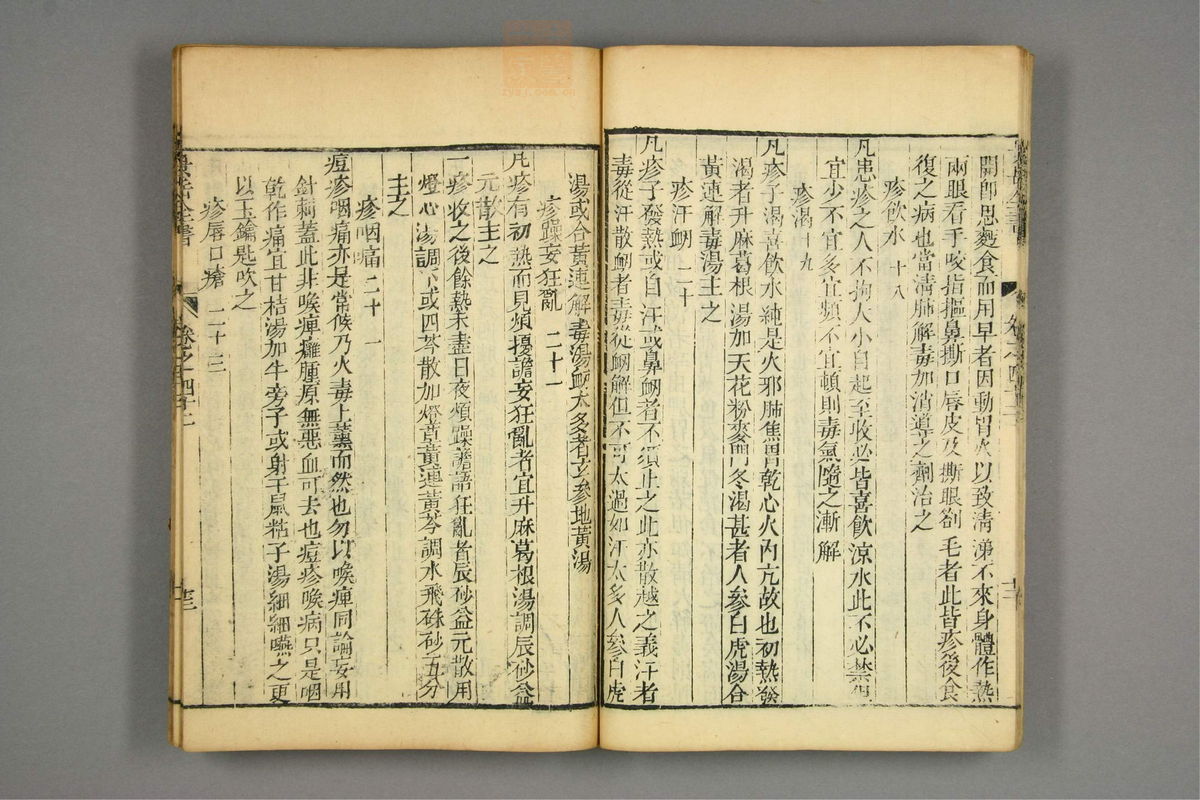 開卽思麫食而用早者因動胃火以致清涕不來身體作熱
兩眼看手咬指摳鼻撕口唇皮及撕眼劄毛者此皆疹後食
復之病也當清肺解毒加消導之劑治之
疹飲水 十八
凡患疹之人不拘大小自起至收必皆喜飲涼水此不必禁但
宜少不宜多宜頻不宜頓則毒氣隨之漸解
疹渴十九
凡疹子渴喜飲水純是火邪肺焦胃乾心火內亢故也初熱發
渴者升麻葛根湯加天花粉麥門冬渴甚者人參白虎湯合
黃連解毒湯主之
疹汗衂 二十
凡疹子發熱或自汗或鼻衂者不須止之此亦散越之義汗者
毒從汗散衂者毒從衂解但不可太過如汗太多人參白虎
湯或合黃連解毒湯衂太多者玄參地黃湯
疹躁妄狂亂 二十一
凡疹有初熱而見煩擾譫妄狂亂者宜升麻葛根湯調辰砂益
元散主之
一疹收之後餘熱未盡日夜煩躁譫語狂亂者辰砂益元散用
燈心湯調下或四苓散加燈草黃連黃芩調水飛硃砂五分
主之
疹咽痛二十一
痘疹咽痛亦是常候乃火毒上薰而然也勿以喉痺同論妄用
針刺蓋此非喉痺癰腫原無惡血可去也痘疹喉病只是咽
乾作痛宜甘桔湯加牛旁子或射干鼠粘子湯細細嚥之更
以玉鑰匙吹之
疹唇口瘡 二十三
景岳全書 卷之四十二 十三